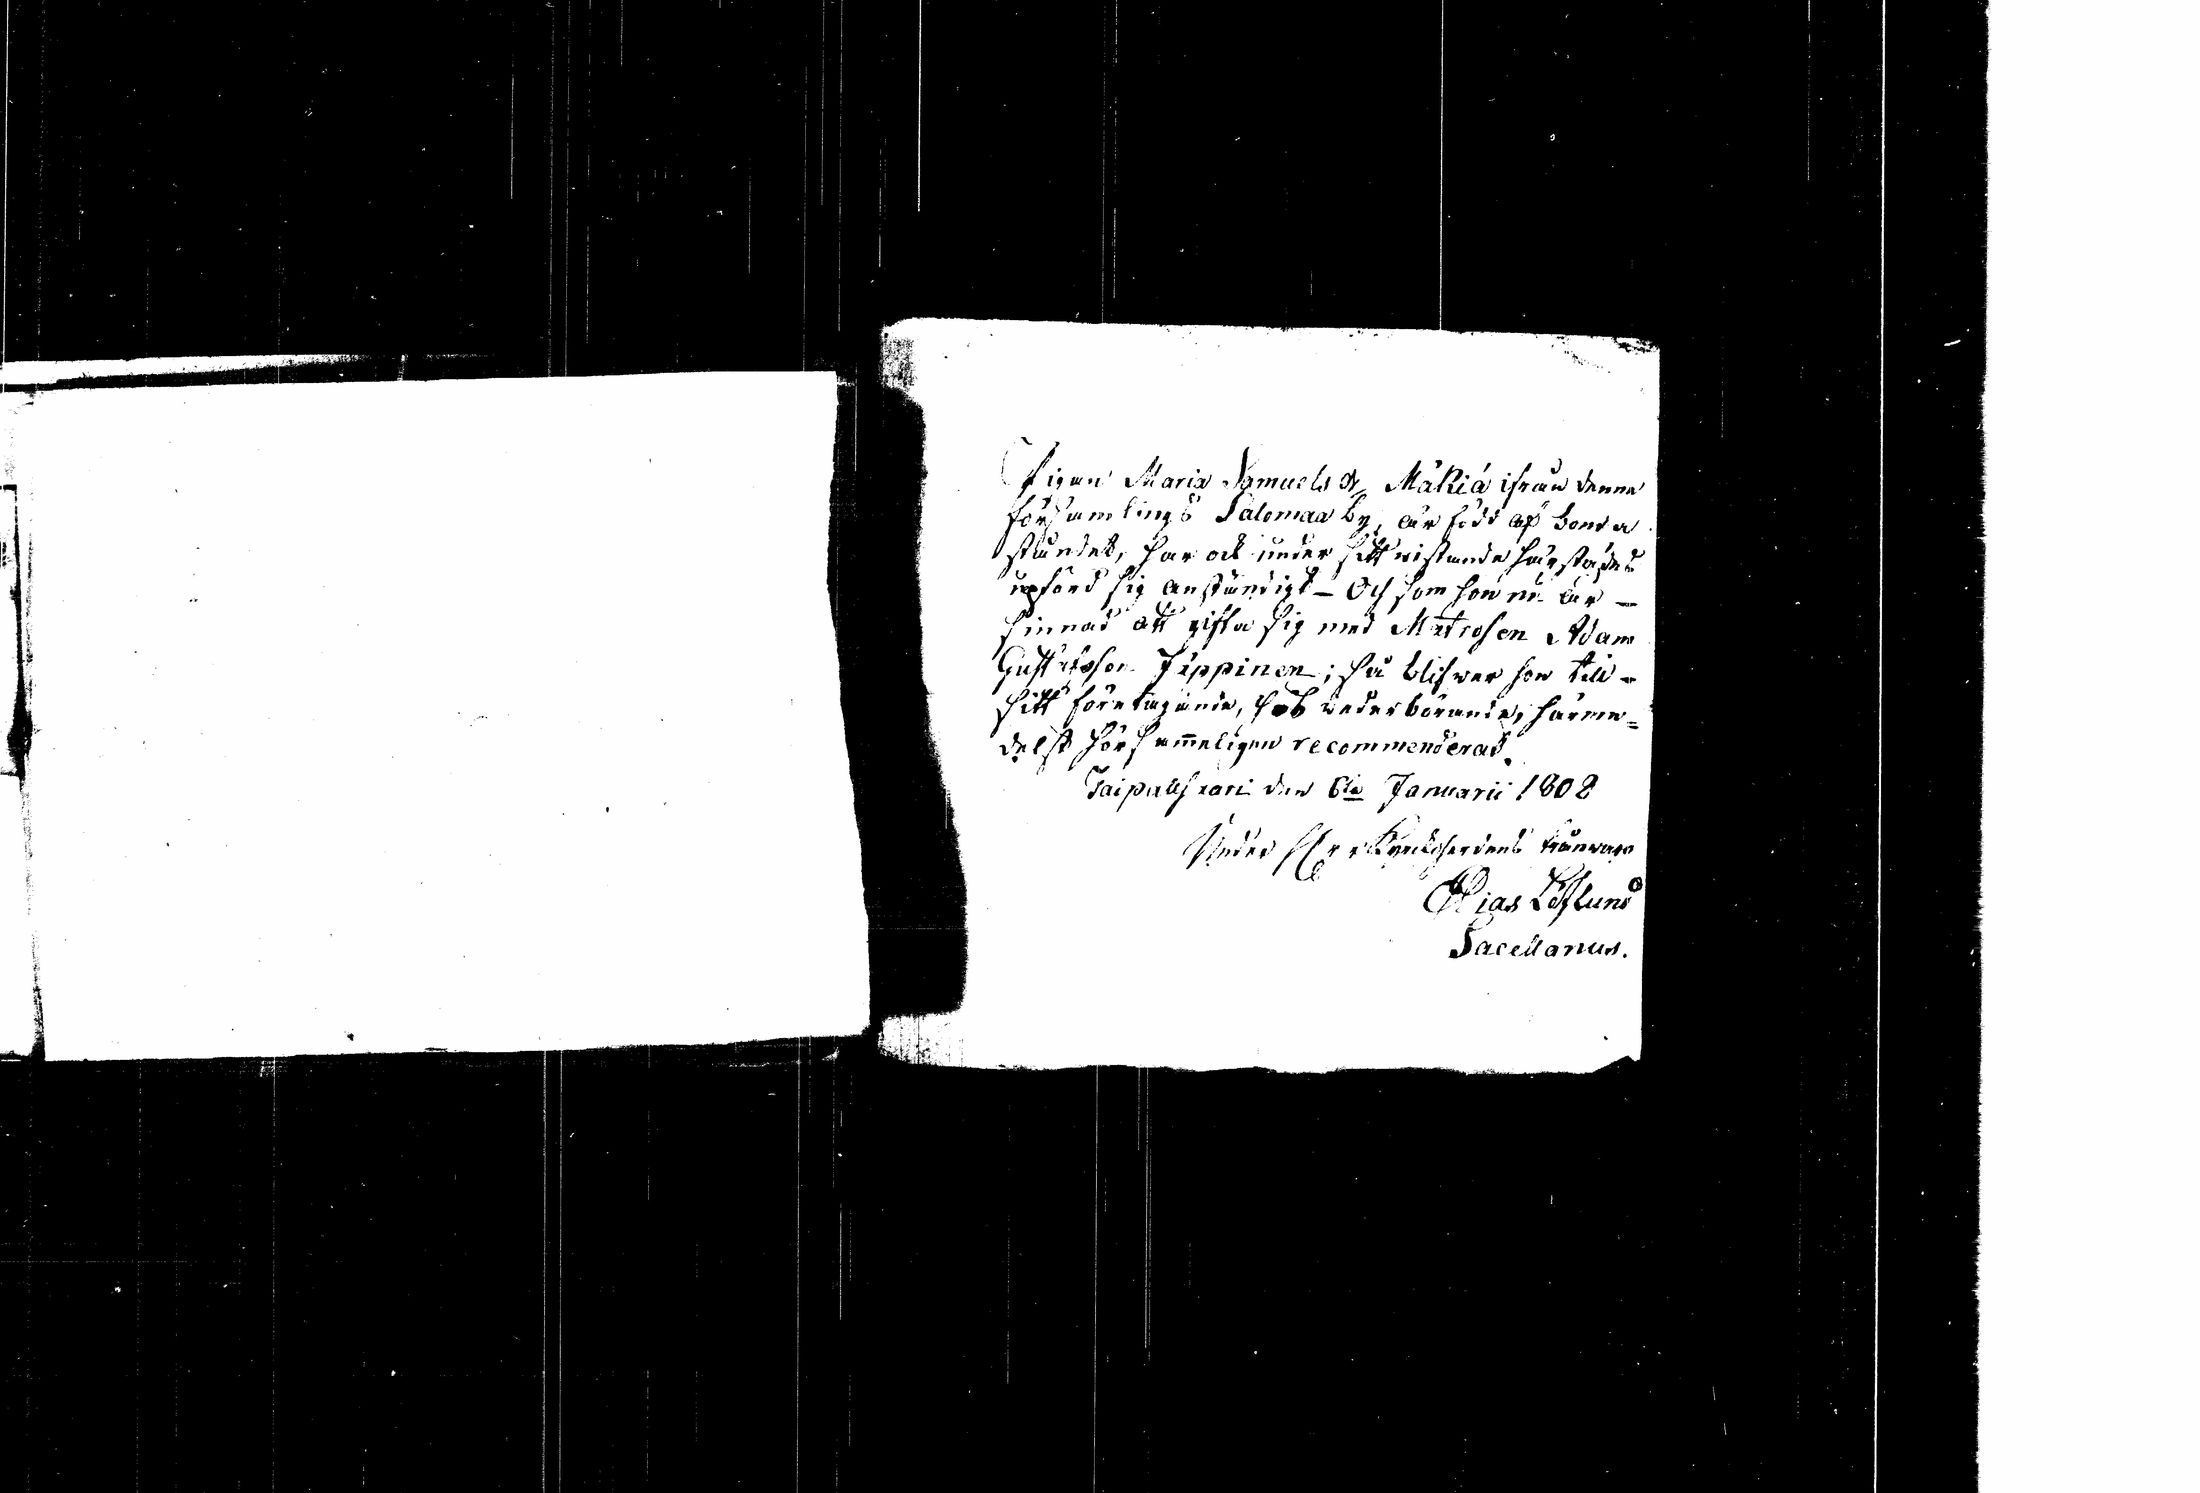 Pigan Maria Samuels dr Mäkiä ifrån denne
församlings Salomaa by, är född af bonda
ståndet, har ock under sitt vistande härstädes
upförd sig anständigt – Och som hon nu är –
sinnad att gifta sig med Matrosen Adam
Gustafsson Jäppinen; så blifver hon till –
sitt företagande, hos vederbörande, härme=
delst hörsammeligen recommenderad.
Taipalsaari den 6te Januarii 1802
Under Herr Kyrkoherdens frånvaro
Elias Löflund
Sacellanus.